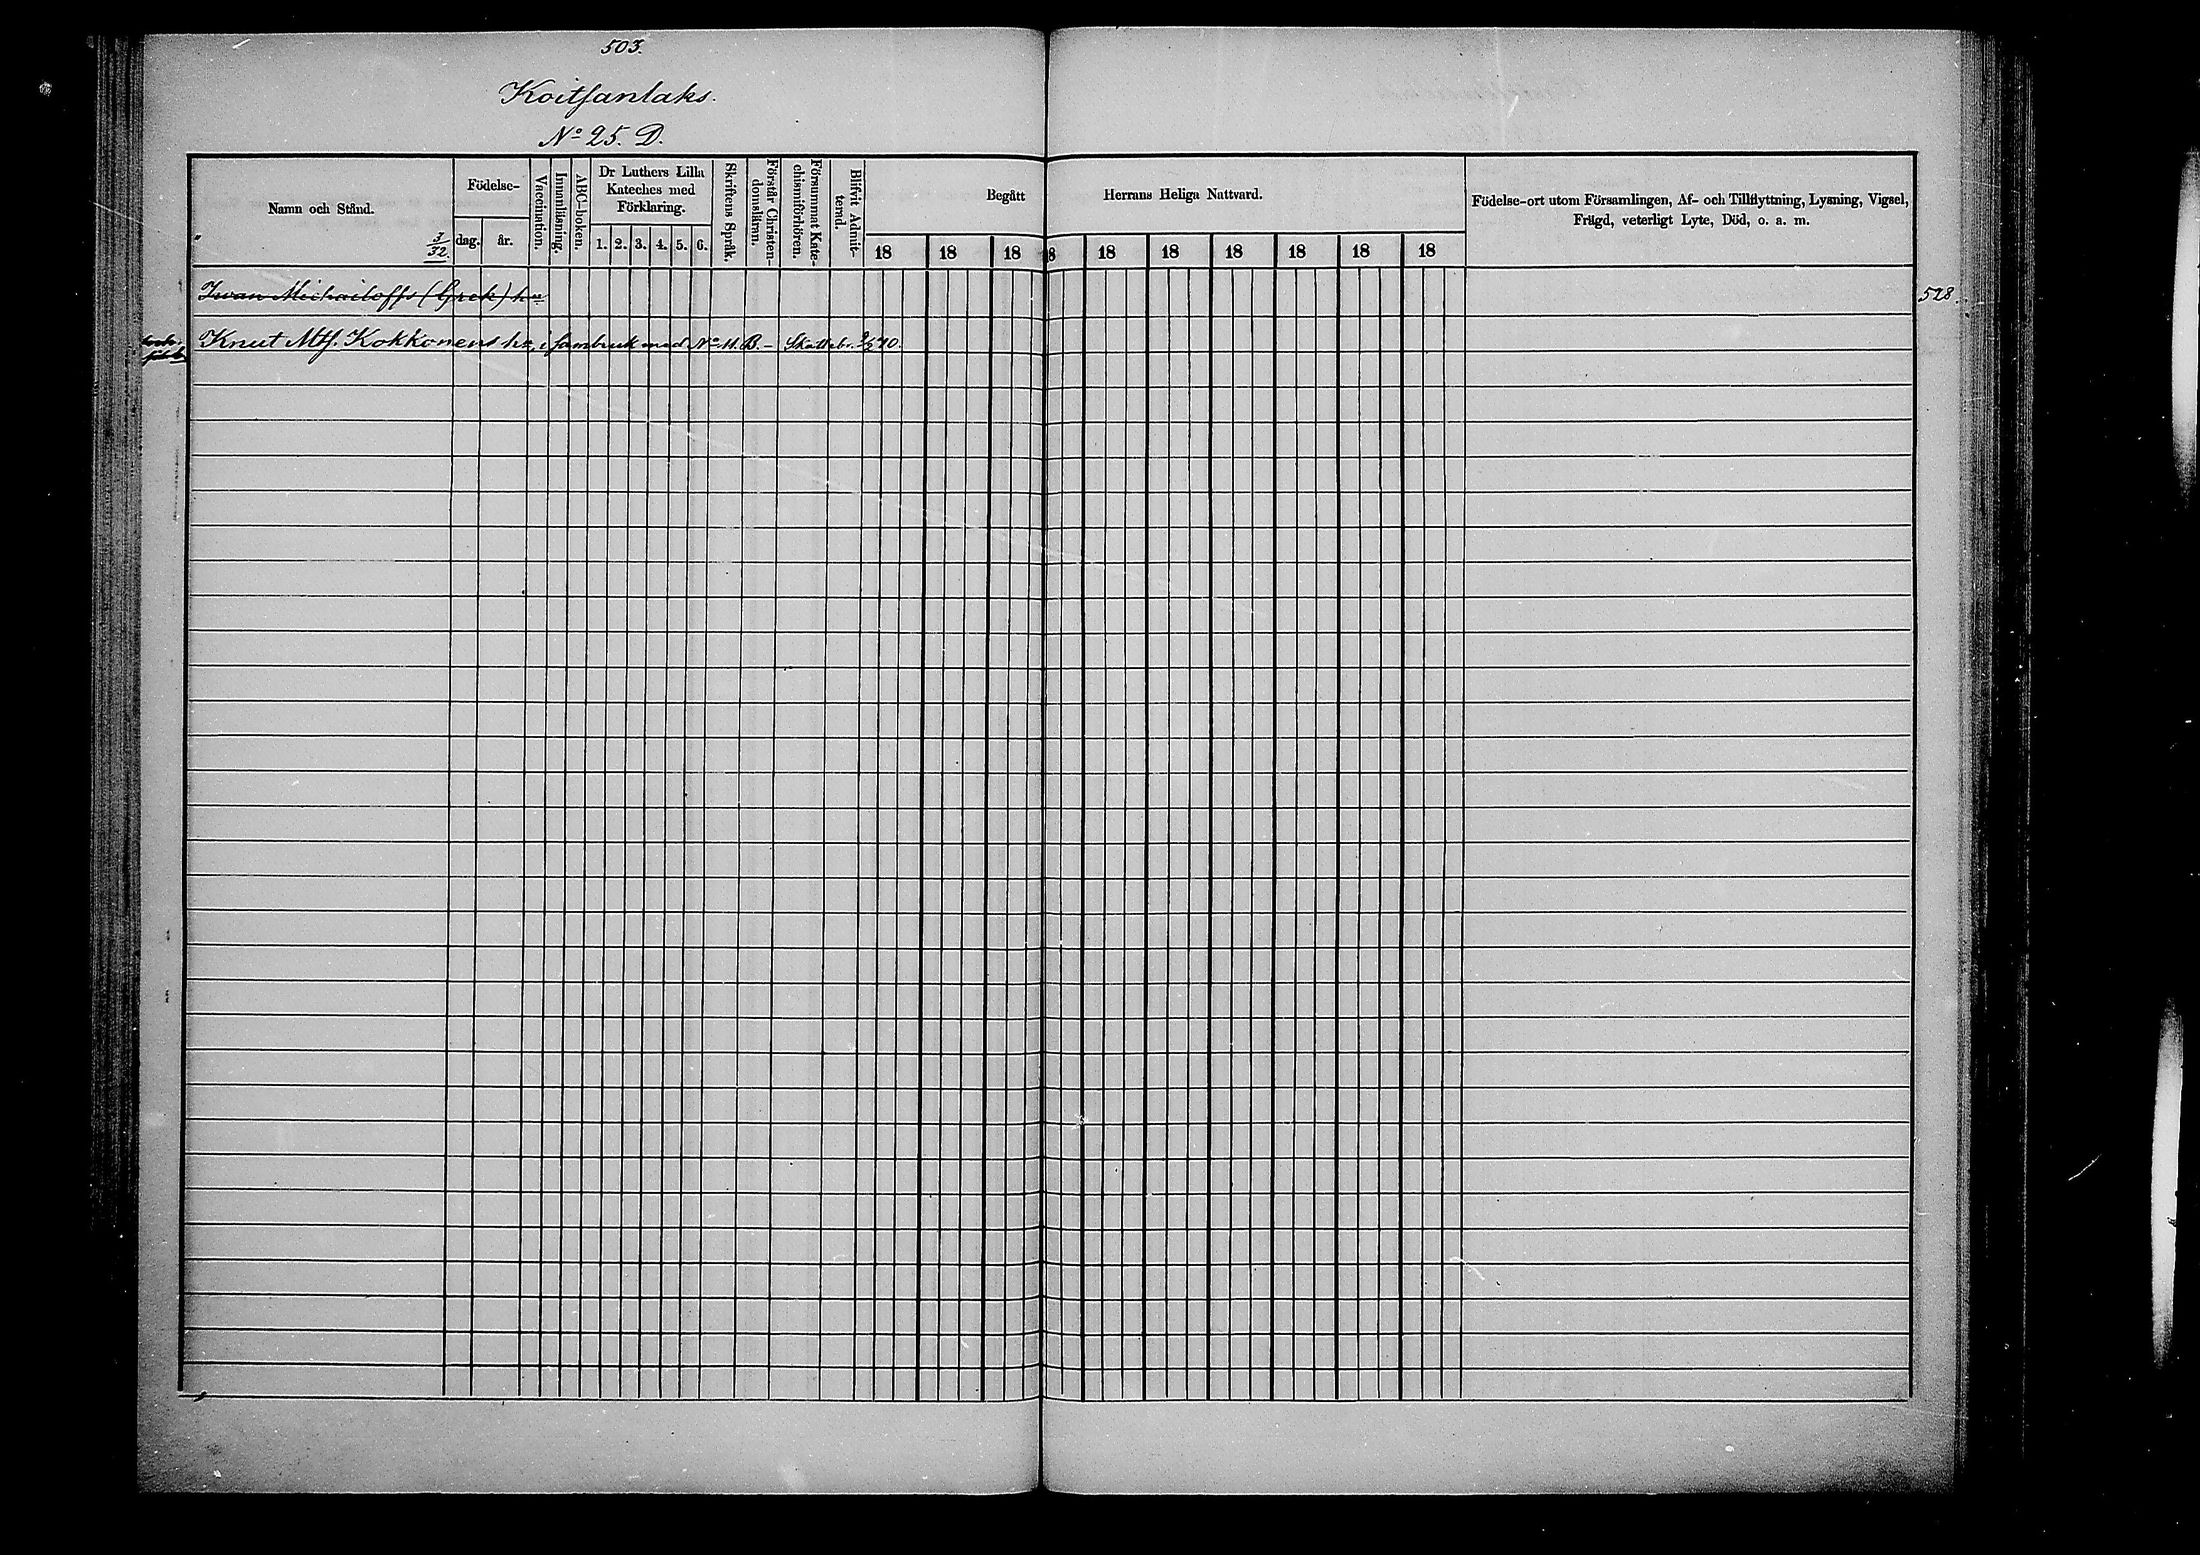 503.
Koitsanlaks.
Nº 25. D.
Namn och Stånd.
3/32.
Födelse-
dag.
år.
Vaccination.
Innanläsning.
ABC-boken.
Dr Luthers Lilla
Kateches med
Förklaring.
1. 2. 3. 4. 5. 6.
Skriftens Språk.
Förstår Christen-
domsläran.
Försummat Kate-
chismiförhören.
Blifvit Admit-
terad.
Begått Herrans Heliga Nattvard.
18 18 18 18 18 18 18 18 18
Födelse-ort utom Församlingen, Af- och Tillflyttning, Lysning, Vigsel,
Frägd, veterligt Lyte, Död, o. a. m.
Iwan Michailoffs (Grek)
528.
Knut Mtss. Kokkonens i sambruk med Nº 11. B. – Skatteb.